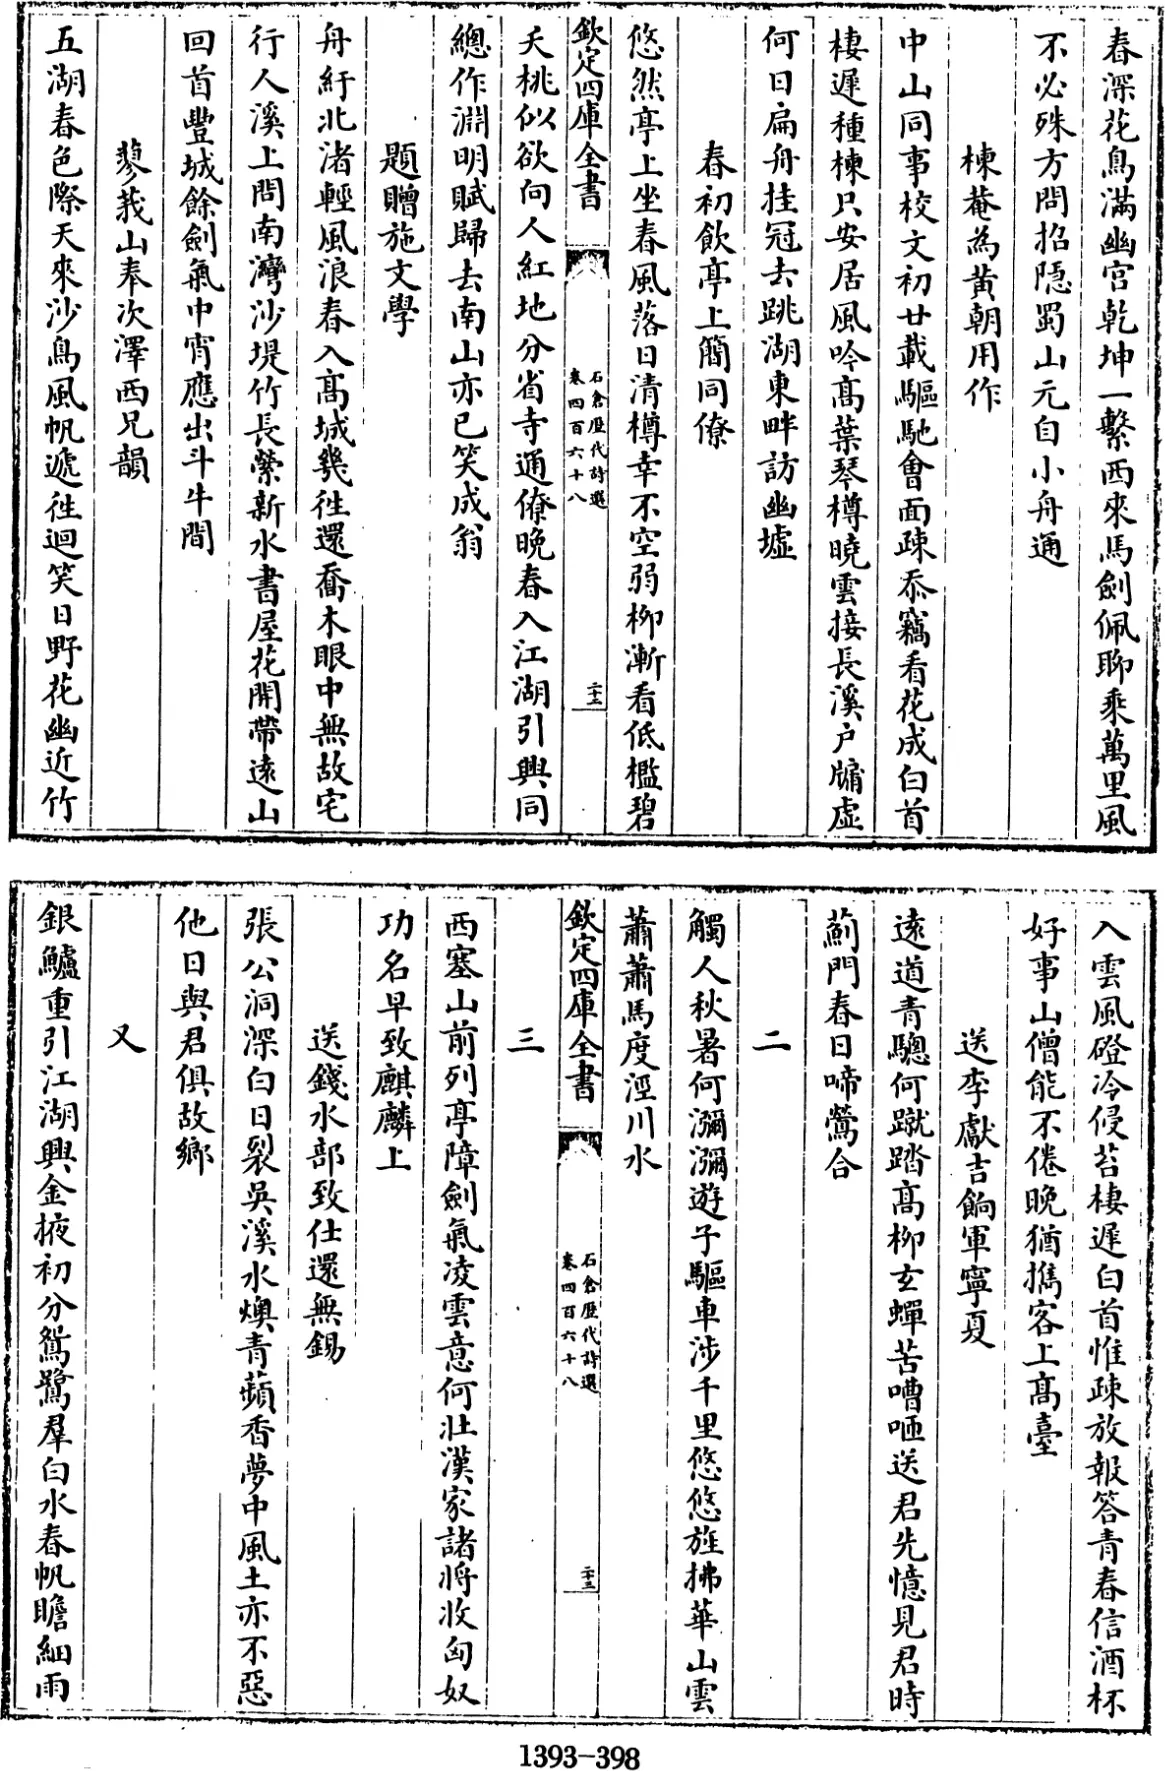 春深花鳥滿幽宫乾坤一繫西來馬劍佩聊乘萬里風
不必殊方問招隠蜀山元自小舟通
楝菴為黄朝用作
中山同事校文初廿載驅馳會面疎忝竊看花成白首
棲遲種楝只安居風吟髙葉琴樽曉雲接長溪户牖虚
何日扁舟挂冠去跳湖東畔訪幽墟
春初飲亭上簡同僚
悠然亭上坐春風落日清樽幸不空弱栁漸看低檻碧
欽定四庫全書
石倉歴代詩選
卷四百六十八
二十二
夭桃似欲向人紅地分省寺通僚晚春入江湖引興同
總作淵明賦歸去南山亦已笑成翁
題贈施文學
舟紆北渚輕風浪春入髙城幾徃還喬木眼中無故宅
行人溪上問南灣沙堤竹長縈新水書屋花開帶逺山
回首豐城餘劍氣中宵應出斗牛間
蓼莪山奉次澤西兄韻
五湖春色際天來沙鳥風帆遞徃迴笑日野花幽近竹
入雲風磴冷侵苔棲遲白首惟疎放報答青春信酒杯
好事山僧能不倦晩猶擕客上髙臺
送李獻吉餉軍寧夏
逺道青驄何蹴踏髙栁玄蟬苦嘈咂送君先憶見君時
薊門春日啼鶯合
二
觸人秋暑何瀰瀰遊子驅車涉千里悠悠旌拂華山雲
蕭蕭馬度涇川水
欽定四庫全書
石倉歴代詩選
卷四百六十八
二十三
三
西塞山前列亭障劍氣凌雲意何壯漢家諸將收匈奴
功名早致麒麟上
送錢水部致仕還無錫
張公洞深白日裂吳溪水燠青蘋香夢中風土亦不惡
他日與君俱故鄉
又
銀鱸重引江湖興金掖初分鴛鷺羣白水春帆瞻細雨
1393-398